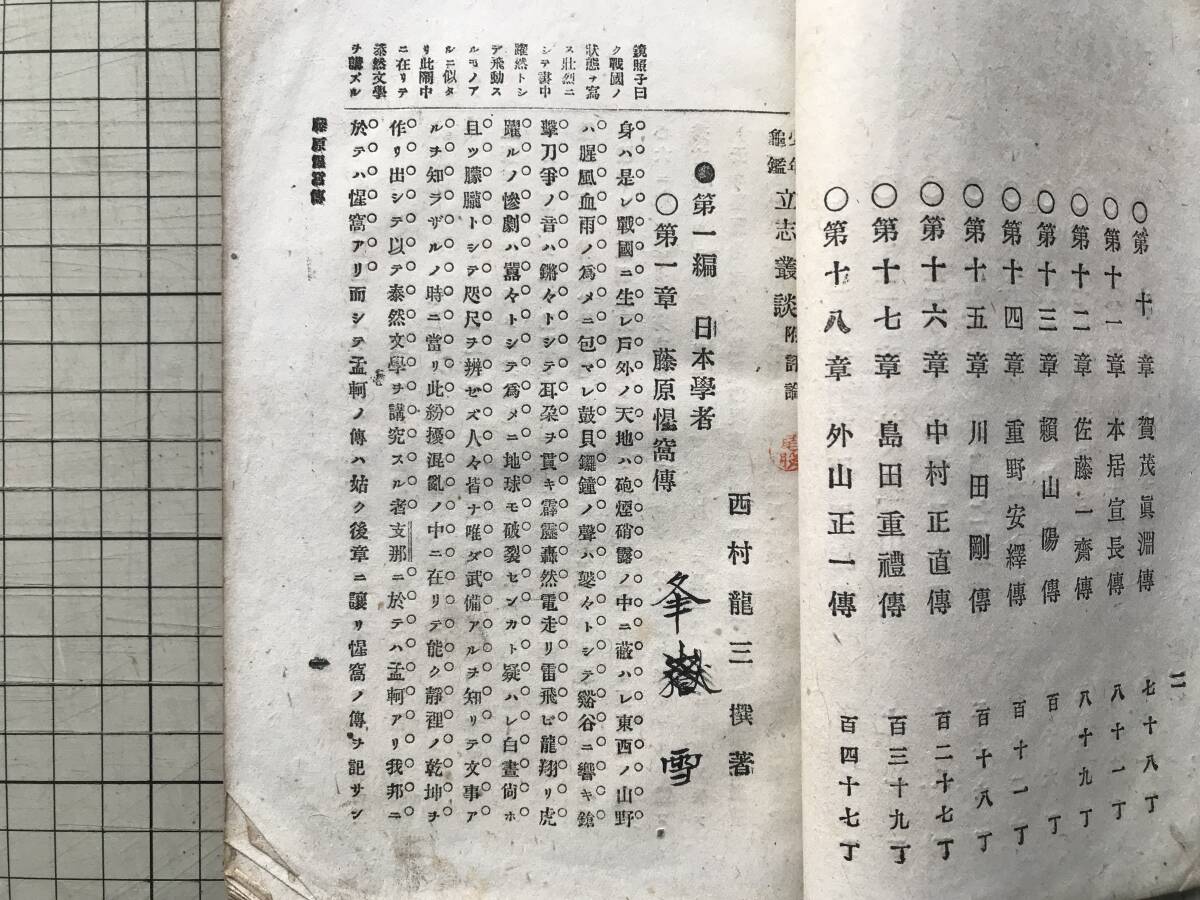 二
〇第十章 賀茂眞淵傳 七十八丁
〇第十一章 本居宣長傳 八十一丁
〇第十二章 佐藤一齋傳 八十九丁
〇第十三章 賴山陽傳 百丁
〇第十四章 重野安繹傳 百十一丁
〇第十五章 川田剛傳 百十八丁
〇第十六章 中村正直傳 百二十七丁
〇第十七章 島田重禮傳 百三十九丁
〇第十八章 外山正一傳 百四十七丁
少年龜鑑 立志叢談 附評論
西村龍三撰著
●第一編 日本學者
〇第一章 藤原惺窩傳
峯嶽 雪
身ハ是レ戰國ニ生レ戶外ノ天地ハ砲煙硝霧ノ中ニ蔽ハレ東西ノ山野
ハ腥風血雨ノ爲メニ包マレ鼓貝鑼鐘ノ聲ハ鼕々トシテ谿谷ニ響キ鎗
擊刀爭ノ音ハ鏘々トシテ耳朶ヲ貫キ霹靂轟然電走リ雷飛ビ龍翔リ虎
躍ルノ慘劇ハ囂々トシテ爲メニ地球モ破裂センカト疑ハレ白晝尙ホ
且ツ朦朧トシテ咫尺ヲ辨ゼズ人々皆ナ唯ダ武備アルヲ知リテ文事ア
ルヲ知ラザルノ時ニ當リ此紛擾混亂ノ中ニ在リテ能ク靜裡ノ乾坤ヲ
作リ出シテ以テ泰然文學ヲ講究スル者支那ニ於テハ孟軻アリ我邦ニ
於テハ惺窩アリ而シテ孟軻ノ傳ハ姑ク後章ニ讓リ惺窩ノ傳ヲ記サン
鏡照子曰
ク戰國ノ
狀態ヲ寫
ス壯烈ニ
シテ書中
躍然トシ
テ飛動ス
ルモノア
ルニ似タ
リ此鬧中
ニ在リテ
泰然文學
ヲ講ズル
藤原惺窩傳
一